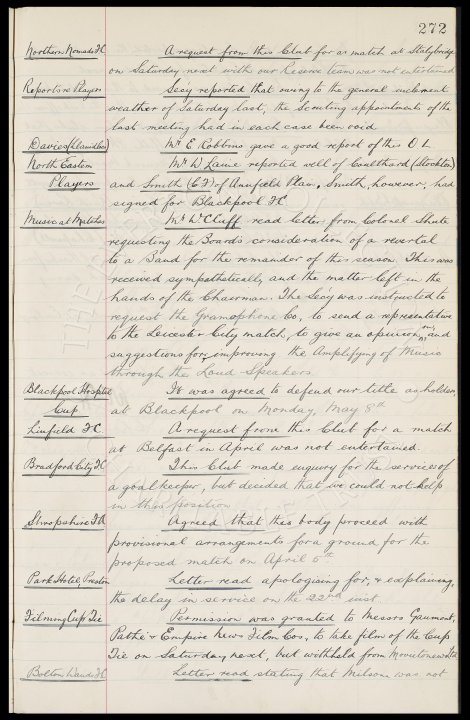 272
Northern Nomads FC A request from this Club for a match at Stalybridge
on Saturday next with our Reserve team was not entertained
Reports re Players Secy reported that owing to the general inclement
weather of Saturday last, the Scouting appointments of the
last meeting had in each case been void
Davies (Llanidloes) Mr E Robbins gave a good report of this O L
North Eastern Mr W Lawe reported well of Coulthard (Stockton)
Players and Smith (C F) of Annfield Plain, Smith, however, had
signed for Blackpool FC
Music at Matches Mr W Cluff read letter from Colonel Shute
requesting the Board's consideration of a revertal
to a Band for the remainder of this season. This was
received sympathetically, and the matter left in the
hands of the Chairman. The Secy was instructed to
request the Gramophone Co, to send a representative
to the Leicester City match, to give an opinion, and
suggestions for improving the Amplifying of Music
through the Loud Speakers
Blackpool Hospital It was agreed to defend our title as holders,
Cup at Blackpool on Monday, May 8th
Linfield FC A request from this Club for a match
at Belfast in April was not entertained.
Bradford City FC This Club made enquiry for the services of
a goalkeeper, but decided that we could not help
in this position
Shropshire FA Agreed that this body proceed with
provisional arrangements for a ground for the
proposed match on April 5th
Park Hotel, Preston Letter read apologising for, & explaining,
the delay in service on the 22nd inst.
Filming Cup Tie Permission was granted to Messrs Gaumont,
Pathe & Empire News Film Cos, to take films of the Cup
Tie on Saturday next, but withheld from Movietonews Ltd
Bolton Wands FC Letter read stating that Milsom was not